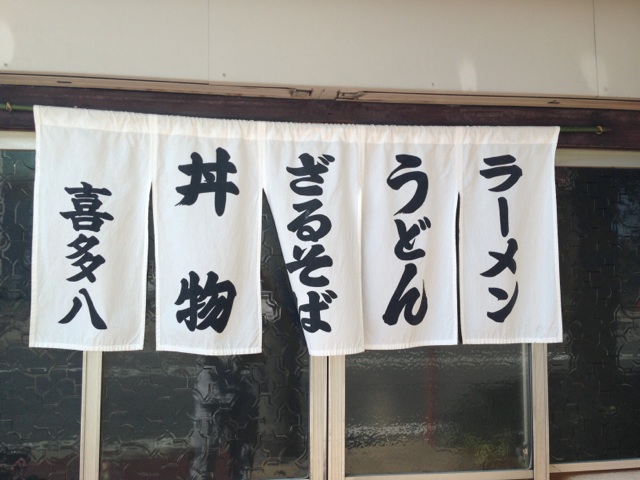 ラーメン
うどん
ざるそば
丼物
喜多八